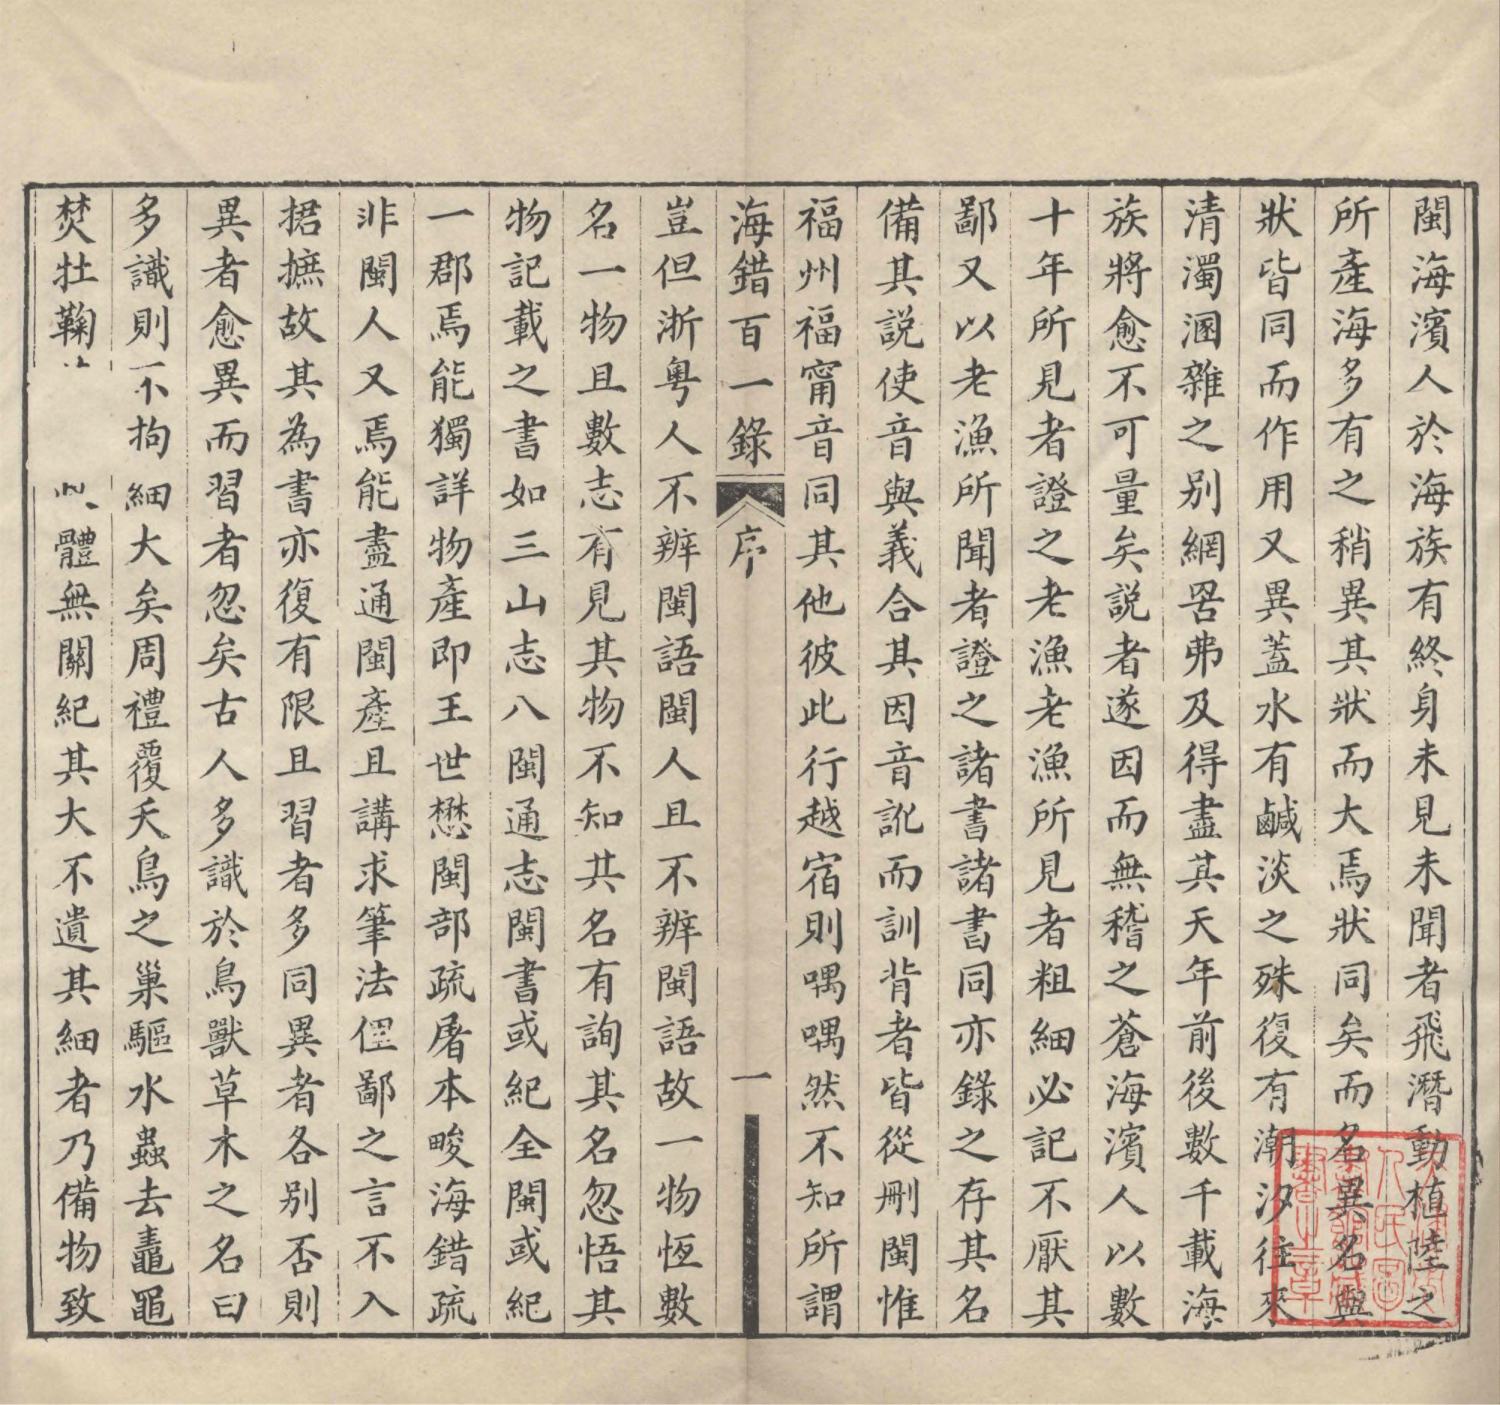 閩海濱人於海族有終身未見未聞者飛潛動植陸之
所產海多有之稍異其狀而大焉狀同矣而名異名與
狀皆同而作用又異蓋水有鹹淡之殊復有潮汐往來
清濁溷雜之別網罟弗及得盡其天年前後數千載海
族將愈不可量矣説者遂因而無稽之蒼海濱人以數
十年所見者證之老漁老漁所見者粗細必記不厭其
鄙又以老漁所聞者證之諸書諸書同亦錄之存其名
備其説使音與義合其因音訛而訓背者皆從刪閩惟
福州福甯音同其他彼此行越宿則喁喁然不知所謂
海錯百一錄 序 一
豈但浙粵人不辨閩語閩人且不辨閩語故一物恆數
名一物且數志有見其物不知其名有詢其名忽悟其
物記載之書如三山志八閩通志閩書或紀全閩或紀
一郡焉能獨詳物產即王世懋閩部疏屠本畯海錯疏
非閩人又焉能盡通閩產且講求筆法俚鄙之言不入
捃摭故其為書亦復有限且習者多同異者各別否則
異者愈異而習者忽矣古人多識於鳥獸草木之名曰
多識則不拘細大矣周禮覆夭鳥之巢驅水蟲去鼃黽
焚牡鞠 體無關紀其大不遺其細者乃備物致